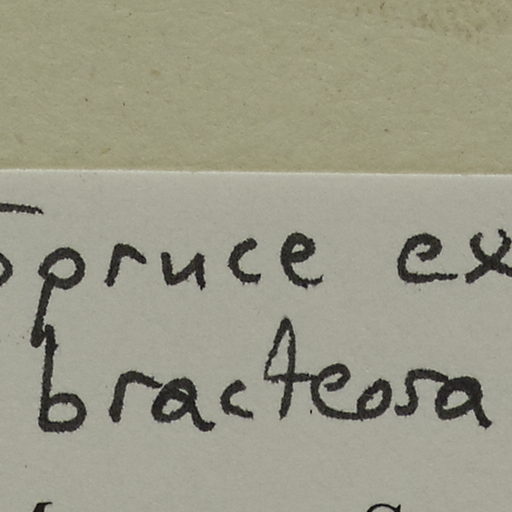 Spruce ex
bracteosa